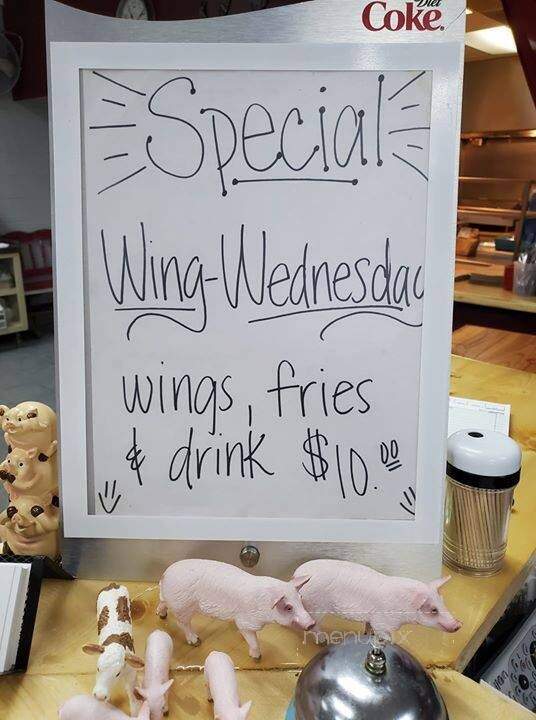 Diet
Coke
Special
Wing-Wednesday
wings, fries
& drink $10.00
menupix